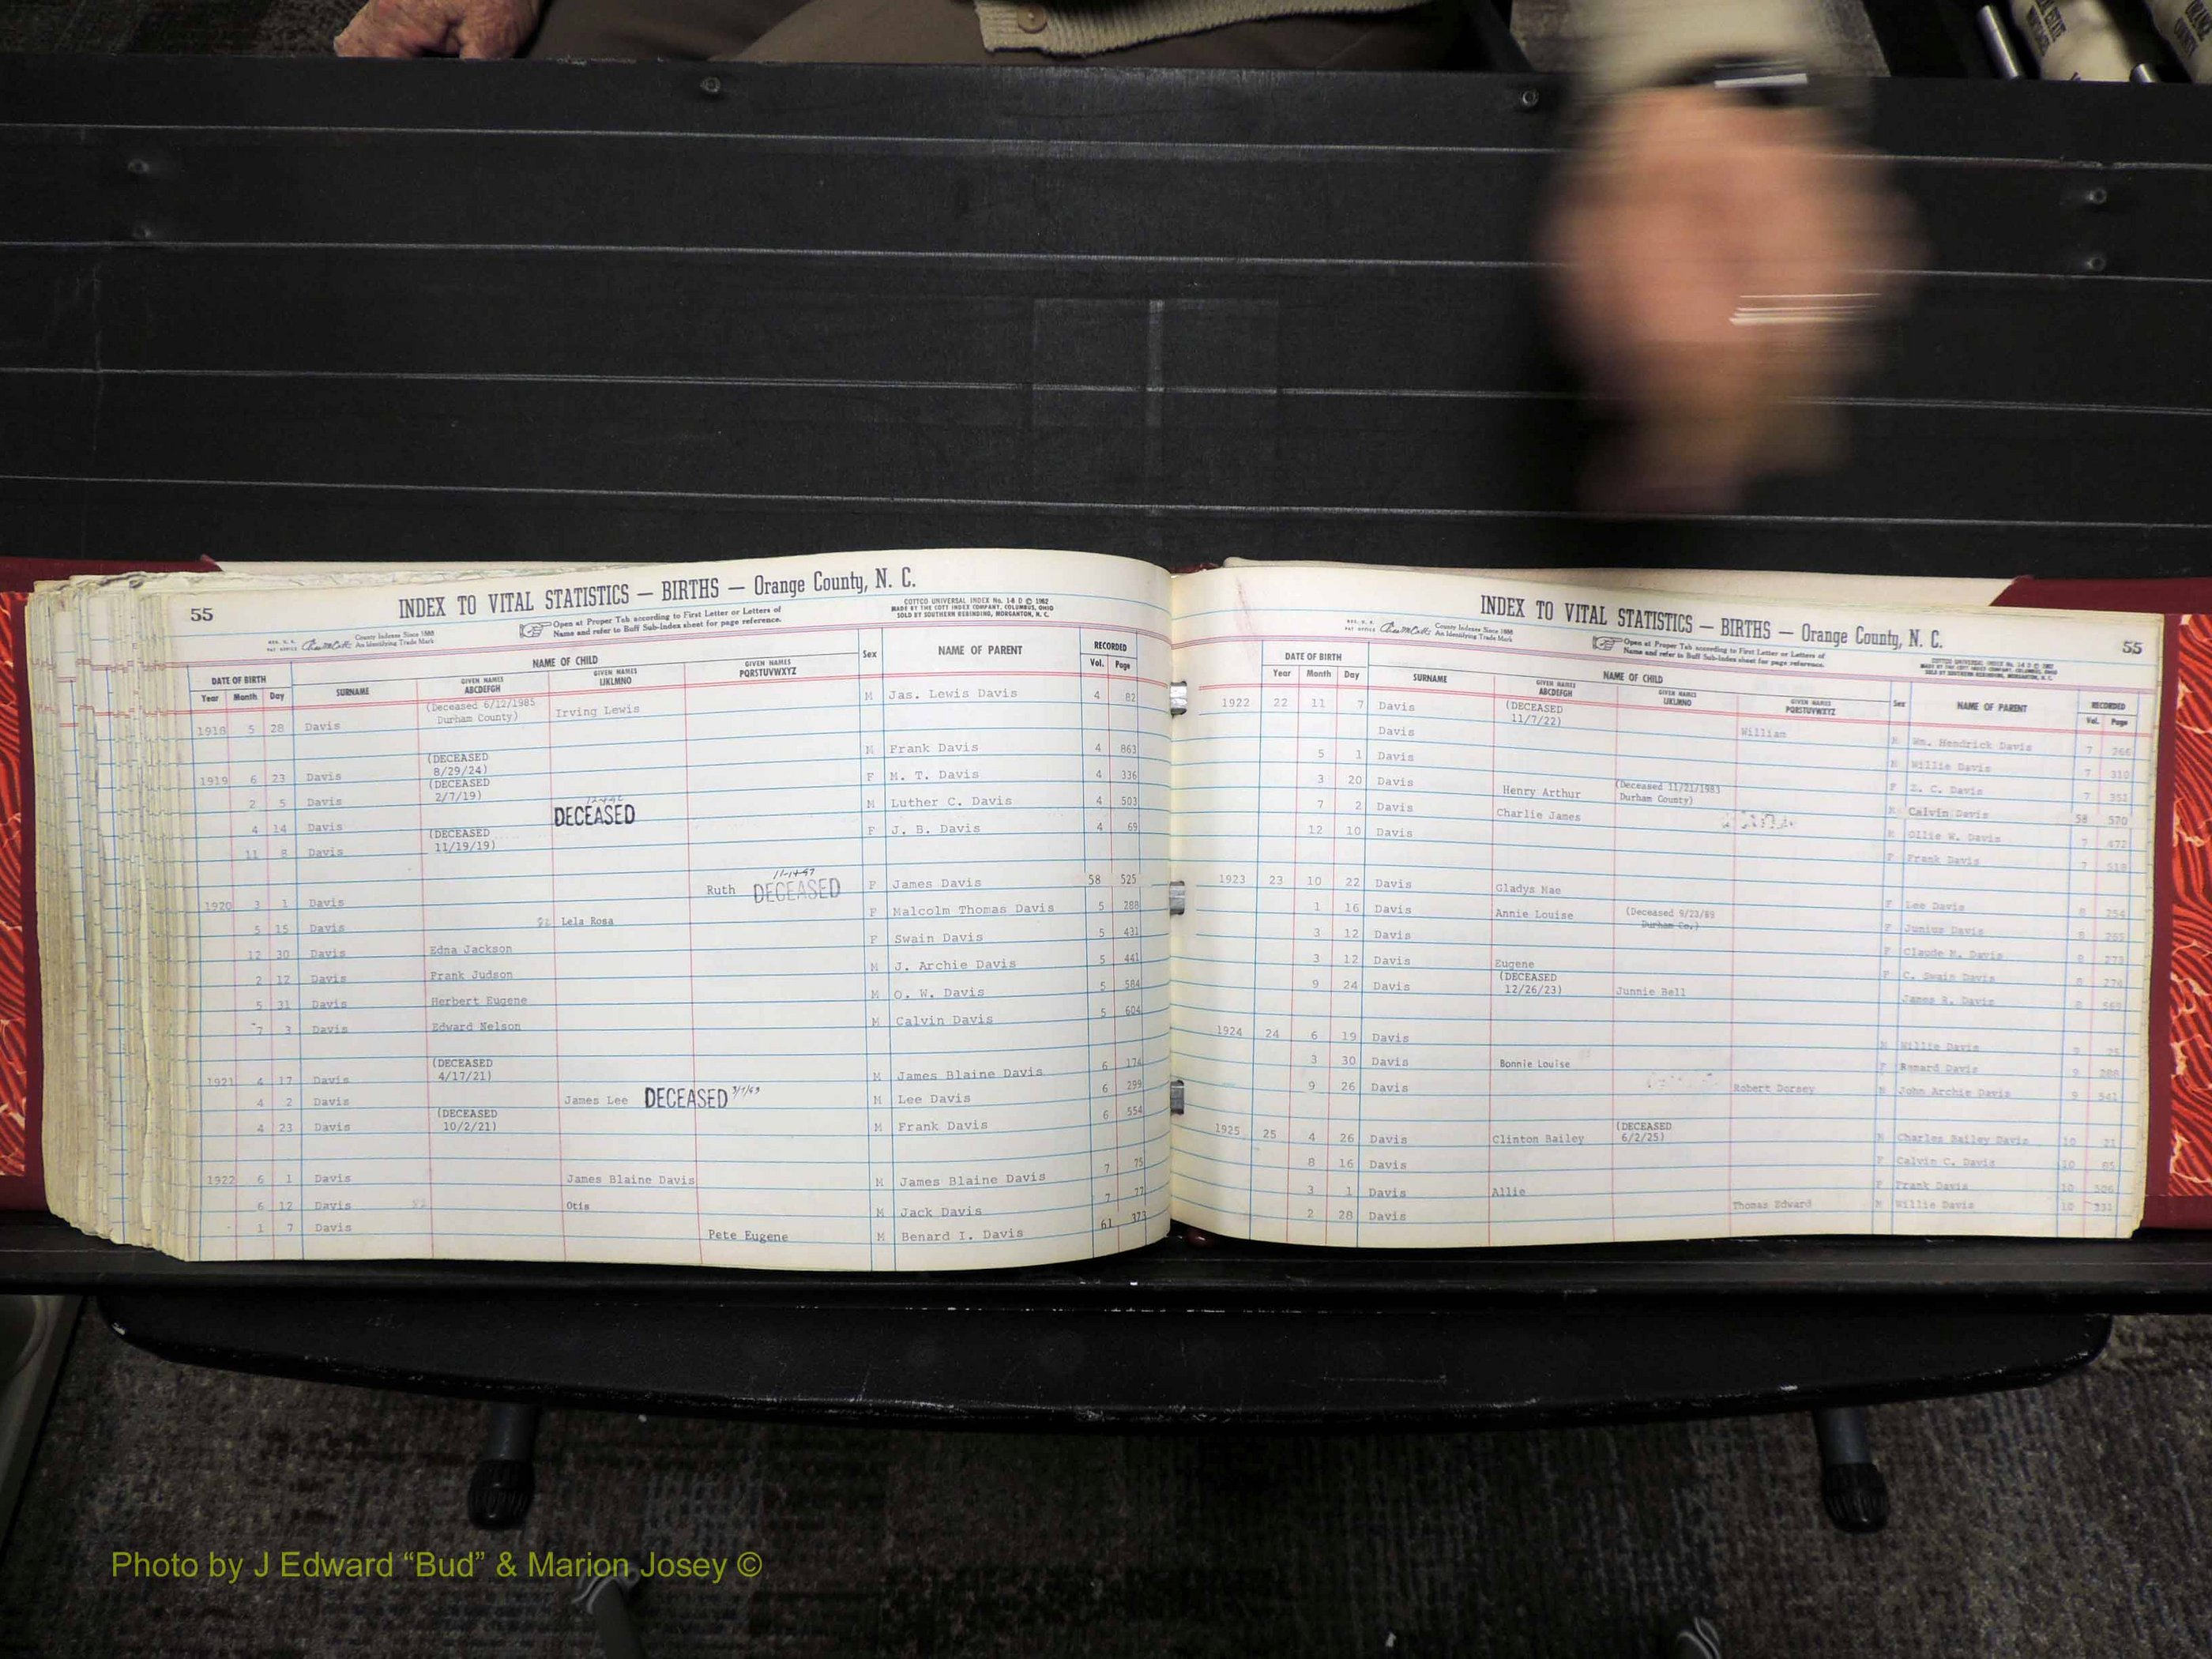 55
INDEX TO VITAL STATISTICS — BIRTHS — Orange County, N. C.
COTTCO UNIVERSAL INDEX No. 1-8 D © 1962
MADE BY THE COTT INDEX COMPANY, COLUMBUS, OHIO
SOLD BY SOUTHERN REBINDING, MORGANTON, N. C.
County Indexes Since 1888
An Identifying Trade Mark
Open at Proper Tab according to First Letter or Letters of
Name and refer to Buff Sub-Index sheet for page reference.
DATE OF BIRTH NAME OF CHILD Sex NAME OF PARENT RECORDED
Year Month Day SURNAME GIVEN NAMES ABCDEFGH GIVEN NAMES IJKLMNO GIVEN NAMES PQRSTUVWXYZ Vol. Page
1918 5 28 Davis (Deceased 6/12/1985 Durham County) Irving Lewis M Jas. Lewis Davis 4 82
1919 6 23 Davis (DECEASED 8/29/24) M Frank Davis 4 863
2 5 Davis (DECEASED 2/7/19) F M. T. Davis 4 336
4 14 Davis DECEASED M Luther C. Davis 4 503
11 8 Davis (DECEASED 11/19/19) F J. B. Davis 4 69
1920 3 1 Davis Ruth DECEASED 11-14-97 F James Davis 58 525
5 15 Davis Lela Rosa F Malcolm Thomas Davis 5 288
12 30 Davis Edna Jackson F Swain Davis 5 431
2 12 Davis Frank Judson M J. Archie Davis 5 441
5 31 Davis Herbert Eugene M O. W. Davis 5 584
7 3 Davis Edward Nelson M Calvin Davis 5 604
1921 4 17 Davis (DECEASED 4/17/21) M James Blaine Davis 6 174
4 2 Davis James Lee DECEASED M Lee Davis 6 299
4 23 Davis (DECEASED 10/2/21) M Frank Davis 6 554
1922 6 1 Davis James Blaine Davis M James Blaine Davis 7 75
6 12 Davis Otis M Jack Davis 7 77
1 7 Davis Pete Eugene M Benard I. Davis 61 373
INDEX TO VITAL STATISTICS — BIRTHS — Orange County, N. C.
55
County Indexes Since 1888
An Identifying Trade Mark
Open at Proper Tab according to First Letter or Letters of
Name and refer to Buff Sub-Index sheet for page reference.
DATE OF BIRTH NAME OF CHILD Sex NAME OF PARENT RECORDED
Year Month Day SURNAME GIVEN NAMES ABCDEFGH GIVEN NAMES IJKLMNO GIVEN NAMES PQRSTUVWXYZ Vol. Page
1922 22 11 7 Davis (DECEASED 11/7/22) M Wm. Hendrick Davis 7 266
Davis William M Willie Davis 7 310
5 1 Davis F Z. C. Davis 7 352
3 20 Davis Henry Arthur (Deceased 11/21/1983 Durham County) M Calvin Davis 58 570
7 2 Davis Charlie James M Ollie W. Davis 7 472
12 10 Davis F Frank Davis 7 518
1923 23 10 22 Davis Gladys Mae F Lee Davis 8 254
1 16 Davis Annie Louise (Deceased 9/23/89 Durham Co.) F Junius Davis 8 265
3 12 Davis F Claude M. Davis 8 273
3 12 Davis Eugene F C. Swain Davis 8 274
9 24 Davis (DECEASED 12/26/23) Junnie Bell James R. Davis 8 569
1924 24 6 19 Davis M Willie Davis 9 25
3 30 Davis Bonnie Louise F Benard Davis 9 288
9 26 Davis Robert Dorsey M John Archie Davis 9 541
1925 25 4 26 Davis Clinton Bailey (DECEASED 6/2/25) M Charles Bailey Davis 10 21
8 16 Davis F Calvin C. Davis 10 85
3 1 Davis Allie F Frank Davis 10 506
2 28 Davis Thomas Edward M Willie Davis 10 331
Photo by J Edward “Bud” & Marion Josey ©